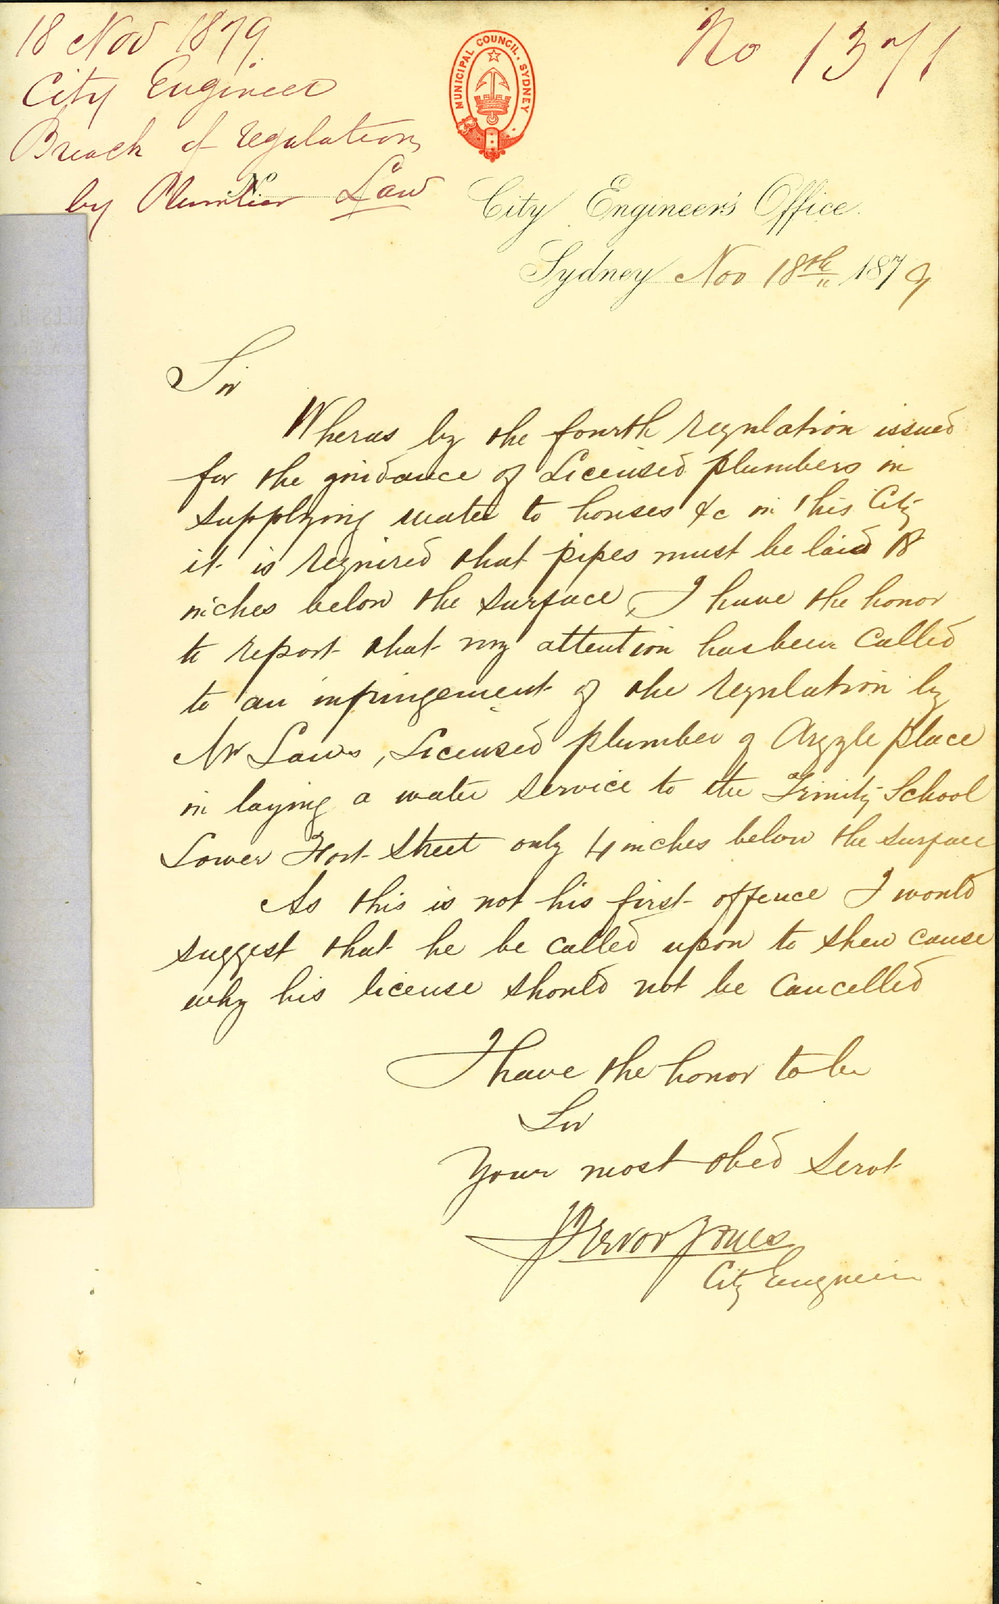 18 Nov 1879
City Engineer
Breach of regulation
by Plumber Law
No 1371
MUNICIPAL COUNCIL. SYDNEY
City Engineer's Office.
Sydney Nov 18th 1879
Sir
Wheras by the fourth regulation issued
for the guidance of Licensed plumbers in
supplying water to houses &c in this City
it is required that pipes must be laid 18
inches below the surface, I have the honor
to report that my attention has been called
to an infringement of the regulation by
Mr Laws, Licensed plumber of Argyle place
in laying a water service to the Trinity School
Lower Fort Street only 4 inches below the surface
As this is not his first offence I would
suggest that he be called upon to shew cause
why his license should not be cancelled
I have the honor to be
Sir
Your most obed servt
Trevor Jones
City Engineer